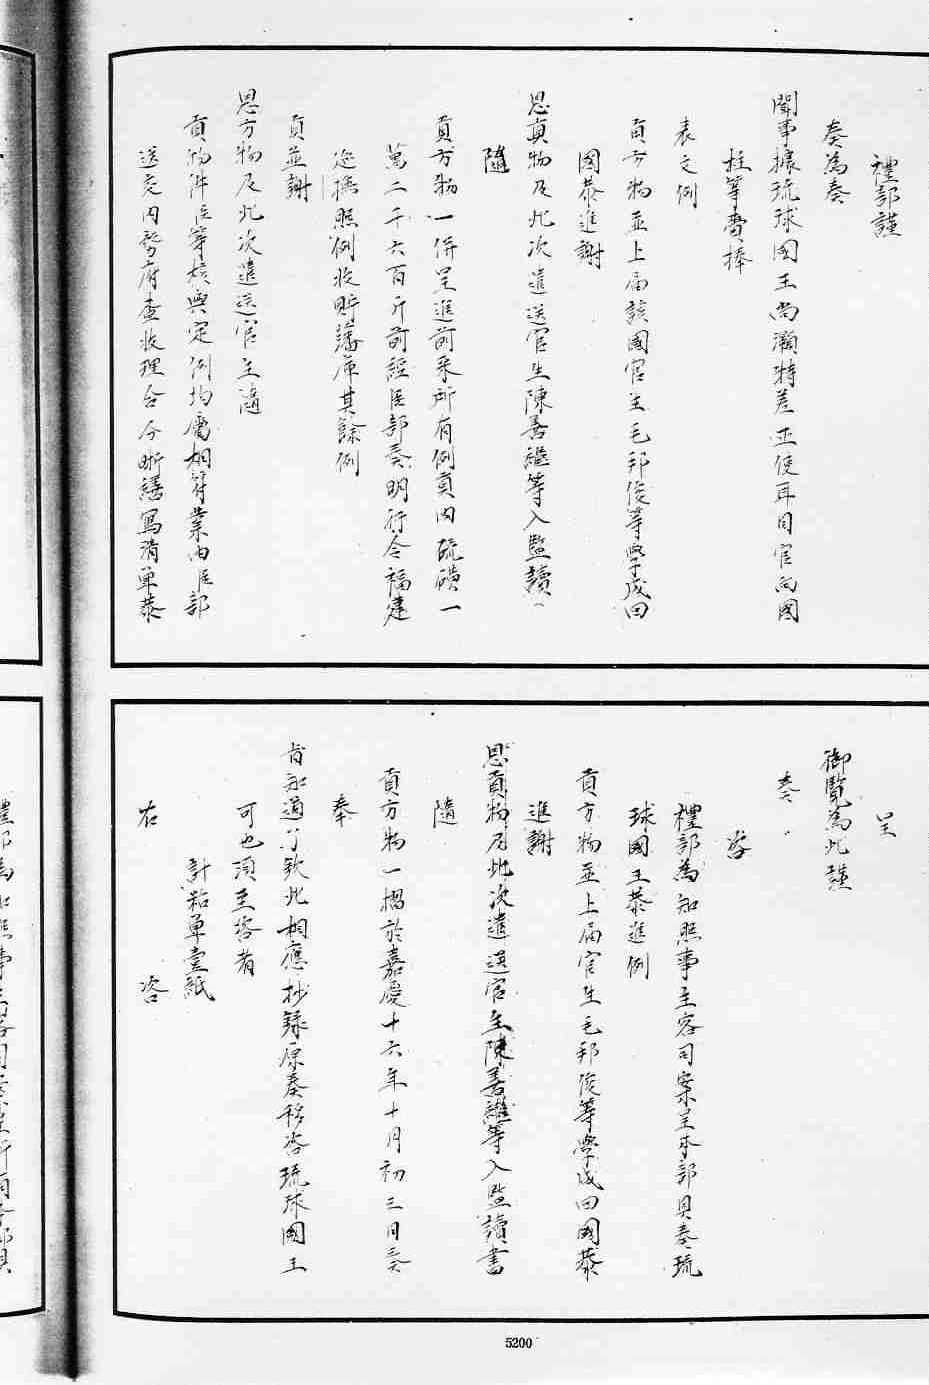 禮部謹
奏為奏
聞事據琉球國王尚灝特差正使耳目官向國
柱等齎捧
表文例
貢方物並上屆該國官生毛邦俊等學成回
國恭進謝
恩貢物及此次遣送官生陳善繼等入監讀
隨
貢方物一併呈進前來所有例貢內硫磺一
萬二千六百斤前經臣部奏明行令福建
巡撫照例收貯藩庫其餘例
貢並謝
恩方物及此次遣送官生隨
貢物件臣等核與定例均屬相符業由臣部
送交內務府查收理合分晰繕寫清單恭
呈
御覽為此謹
奏
咨
禮部為知照事主客司案呈本部具奏琉
球國王恭進例
貢方物並上屆官生毛邦俊等學成回國恭
進謝
恩貢物及此次遣送官生陳善繼等入監讀書
隨
貢方物一摺於嘉慶十六年十月初三日奏
奉
旨知道了欽此相應抄錄原奏移咨琉球國王
可也須至咨者
計粘單壹紙
右　咨
5200